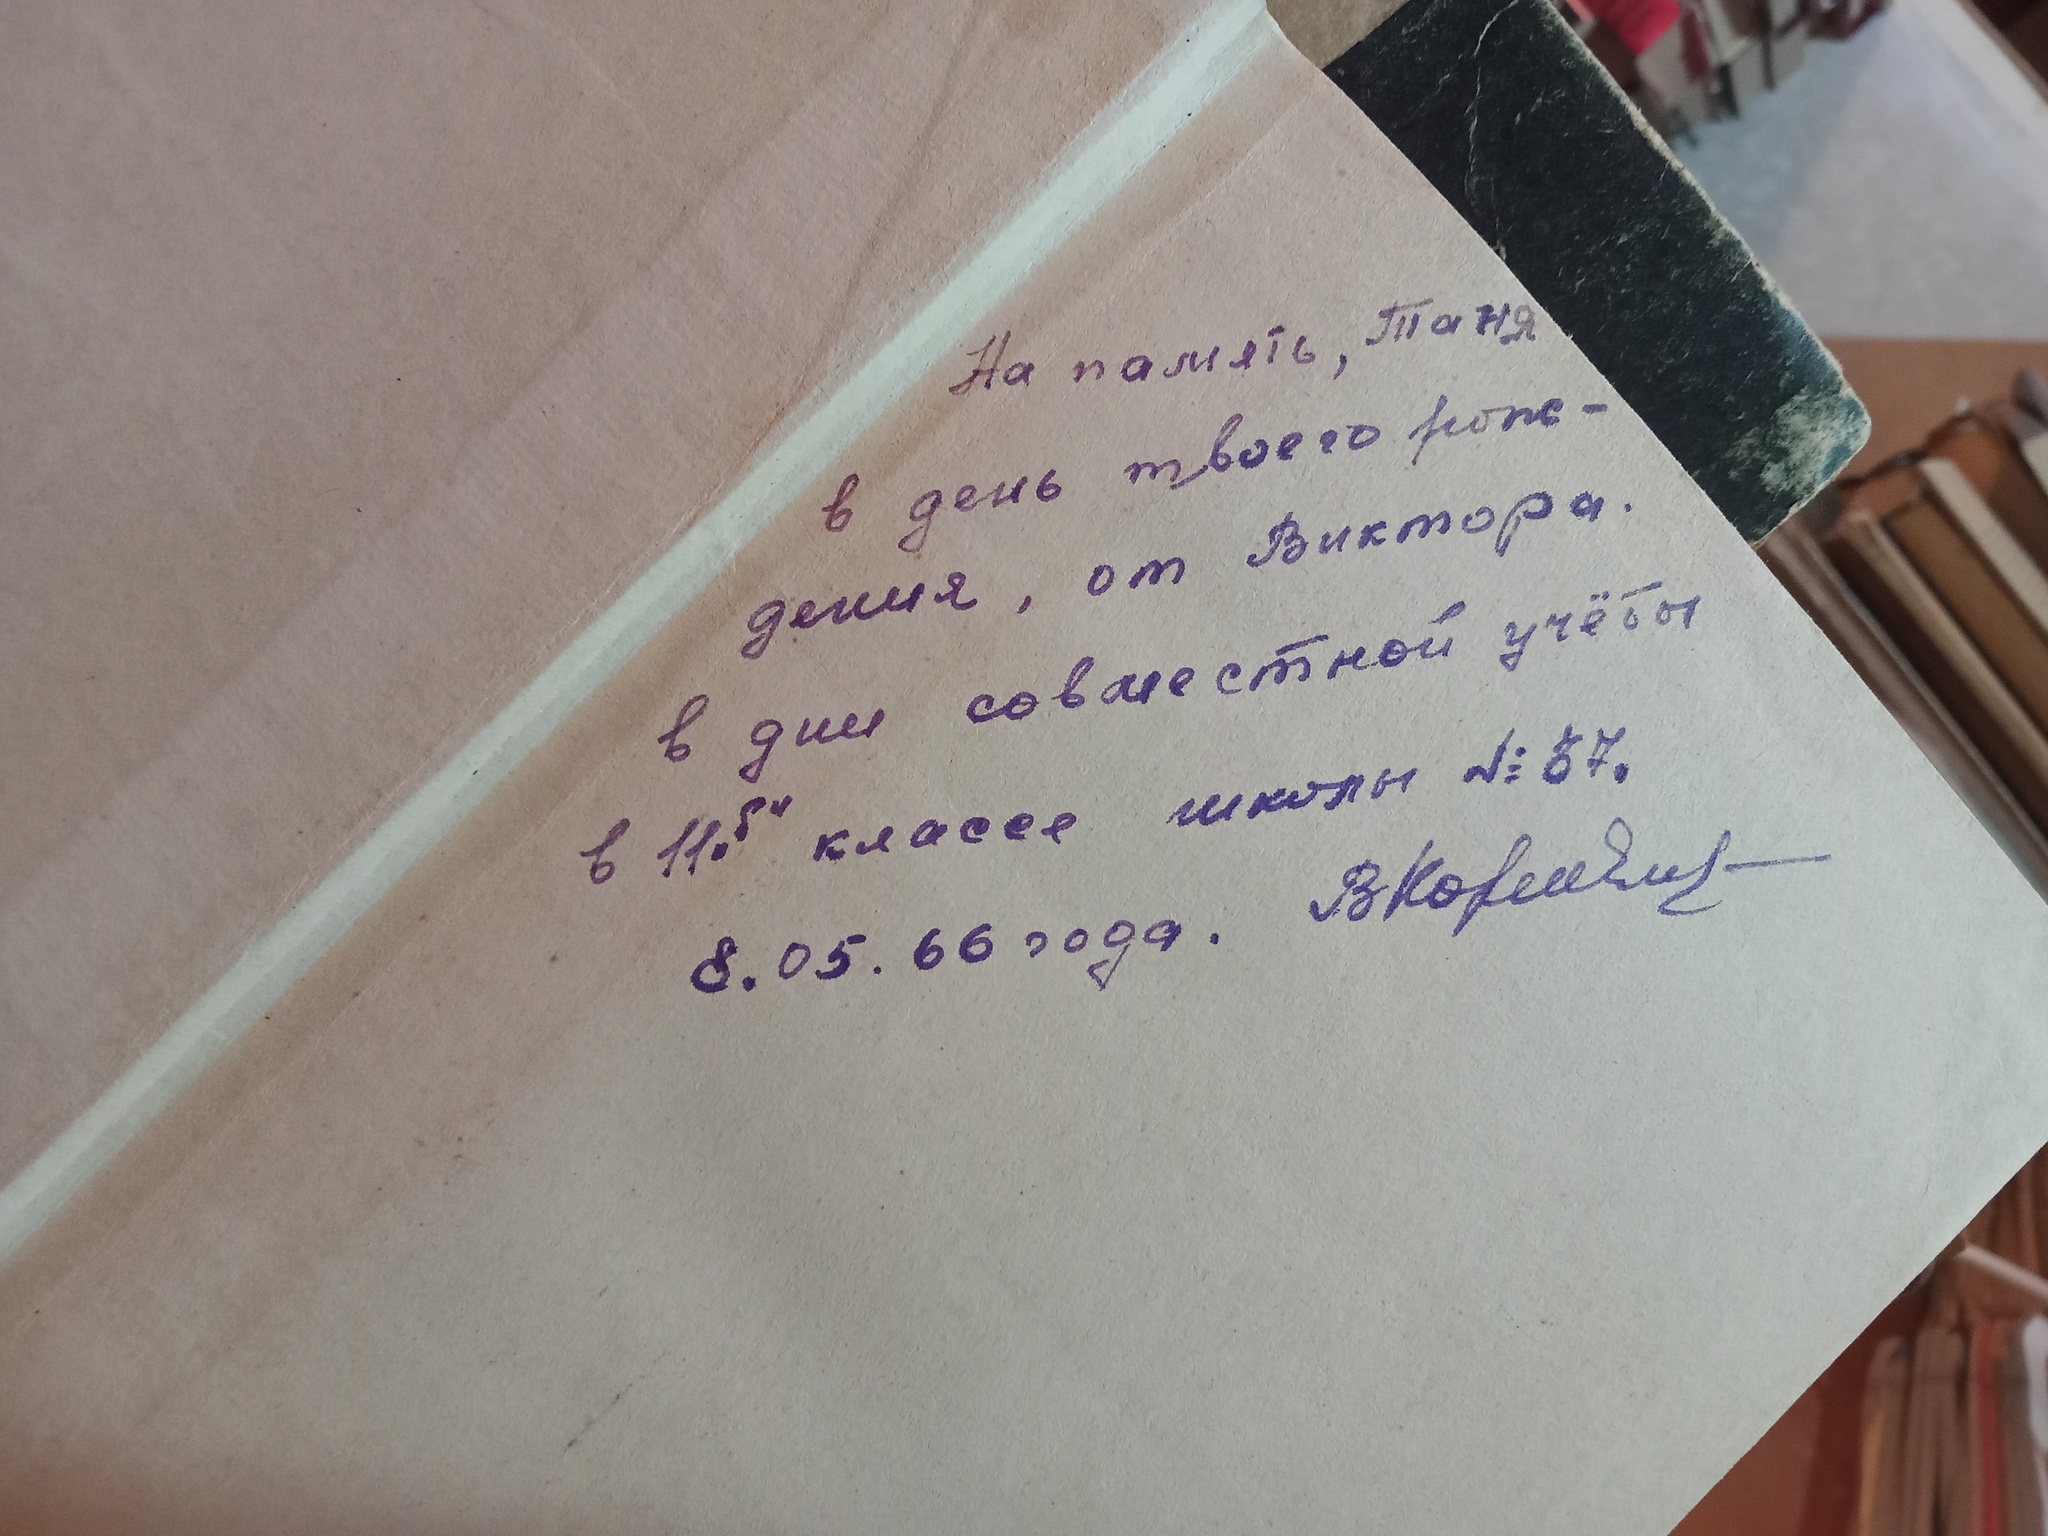 На память, Таня
в день твоего рож-
дения, от Виктора.
в дни совместной учёбы
в 11.„б" классе школы №
8.05.66 года.